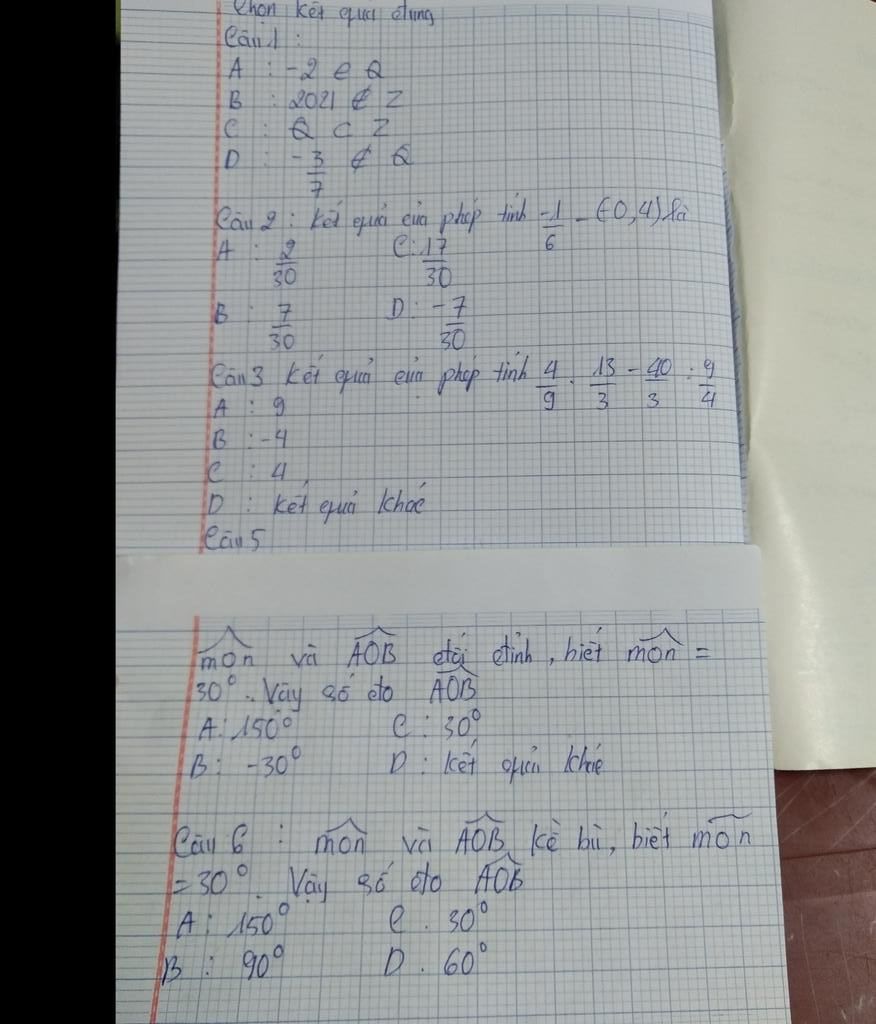 Chọn kết quả đúng
Câu 1 :
A : -2 ∈ Q
B : 2021 ∉ Z
C : Q ⊂ Z
D : -3/7 ∉ Q
Câu 2 : Kết quả của phép tính -1/6 - (-0,4) là
A : 2/30 C : 17/30
B : 7/30 D : -7/30
Câu 3 Kết quả của phép tính 4/9 . 13/3 - 40/3 : 9/4
A : 9
B : -4
C : 4
D : Kết quả khác
Câu 5
mOn và AOB đối đỉnh, biết mOn =
30°. Vậy số đo AOB
A : 150° C : 30°
B : -30° D : Kết quả khác
Câu 6 : mOn và AOB kề bù, biết mOn
= 30°. Vậy số đo AOB
A : 150° C . 30°
B : 90° D . 60°